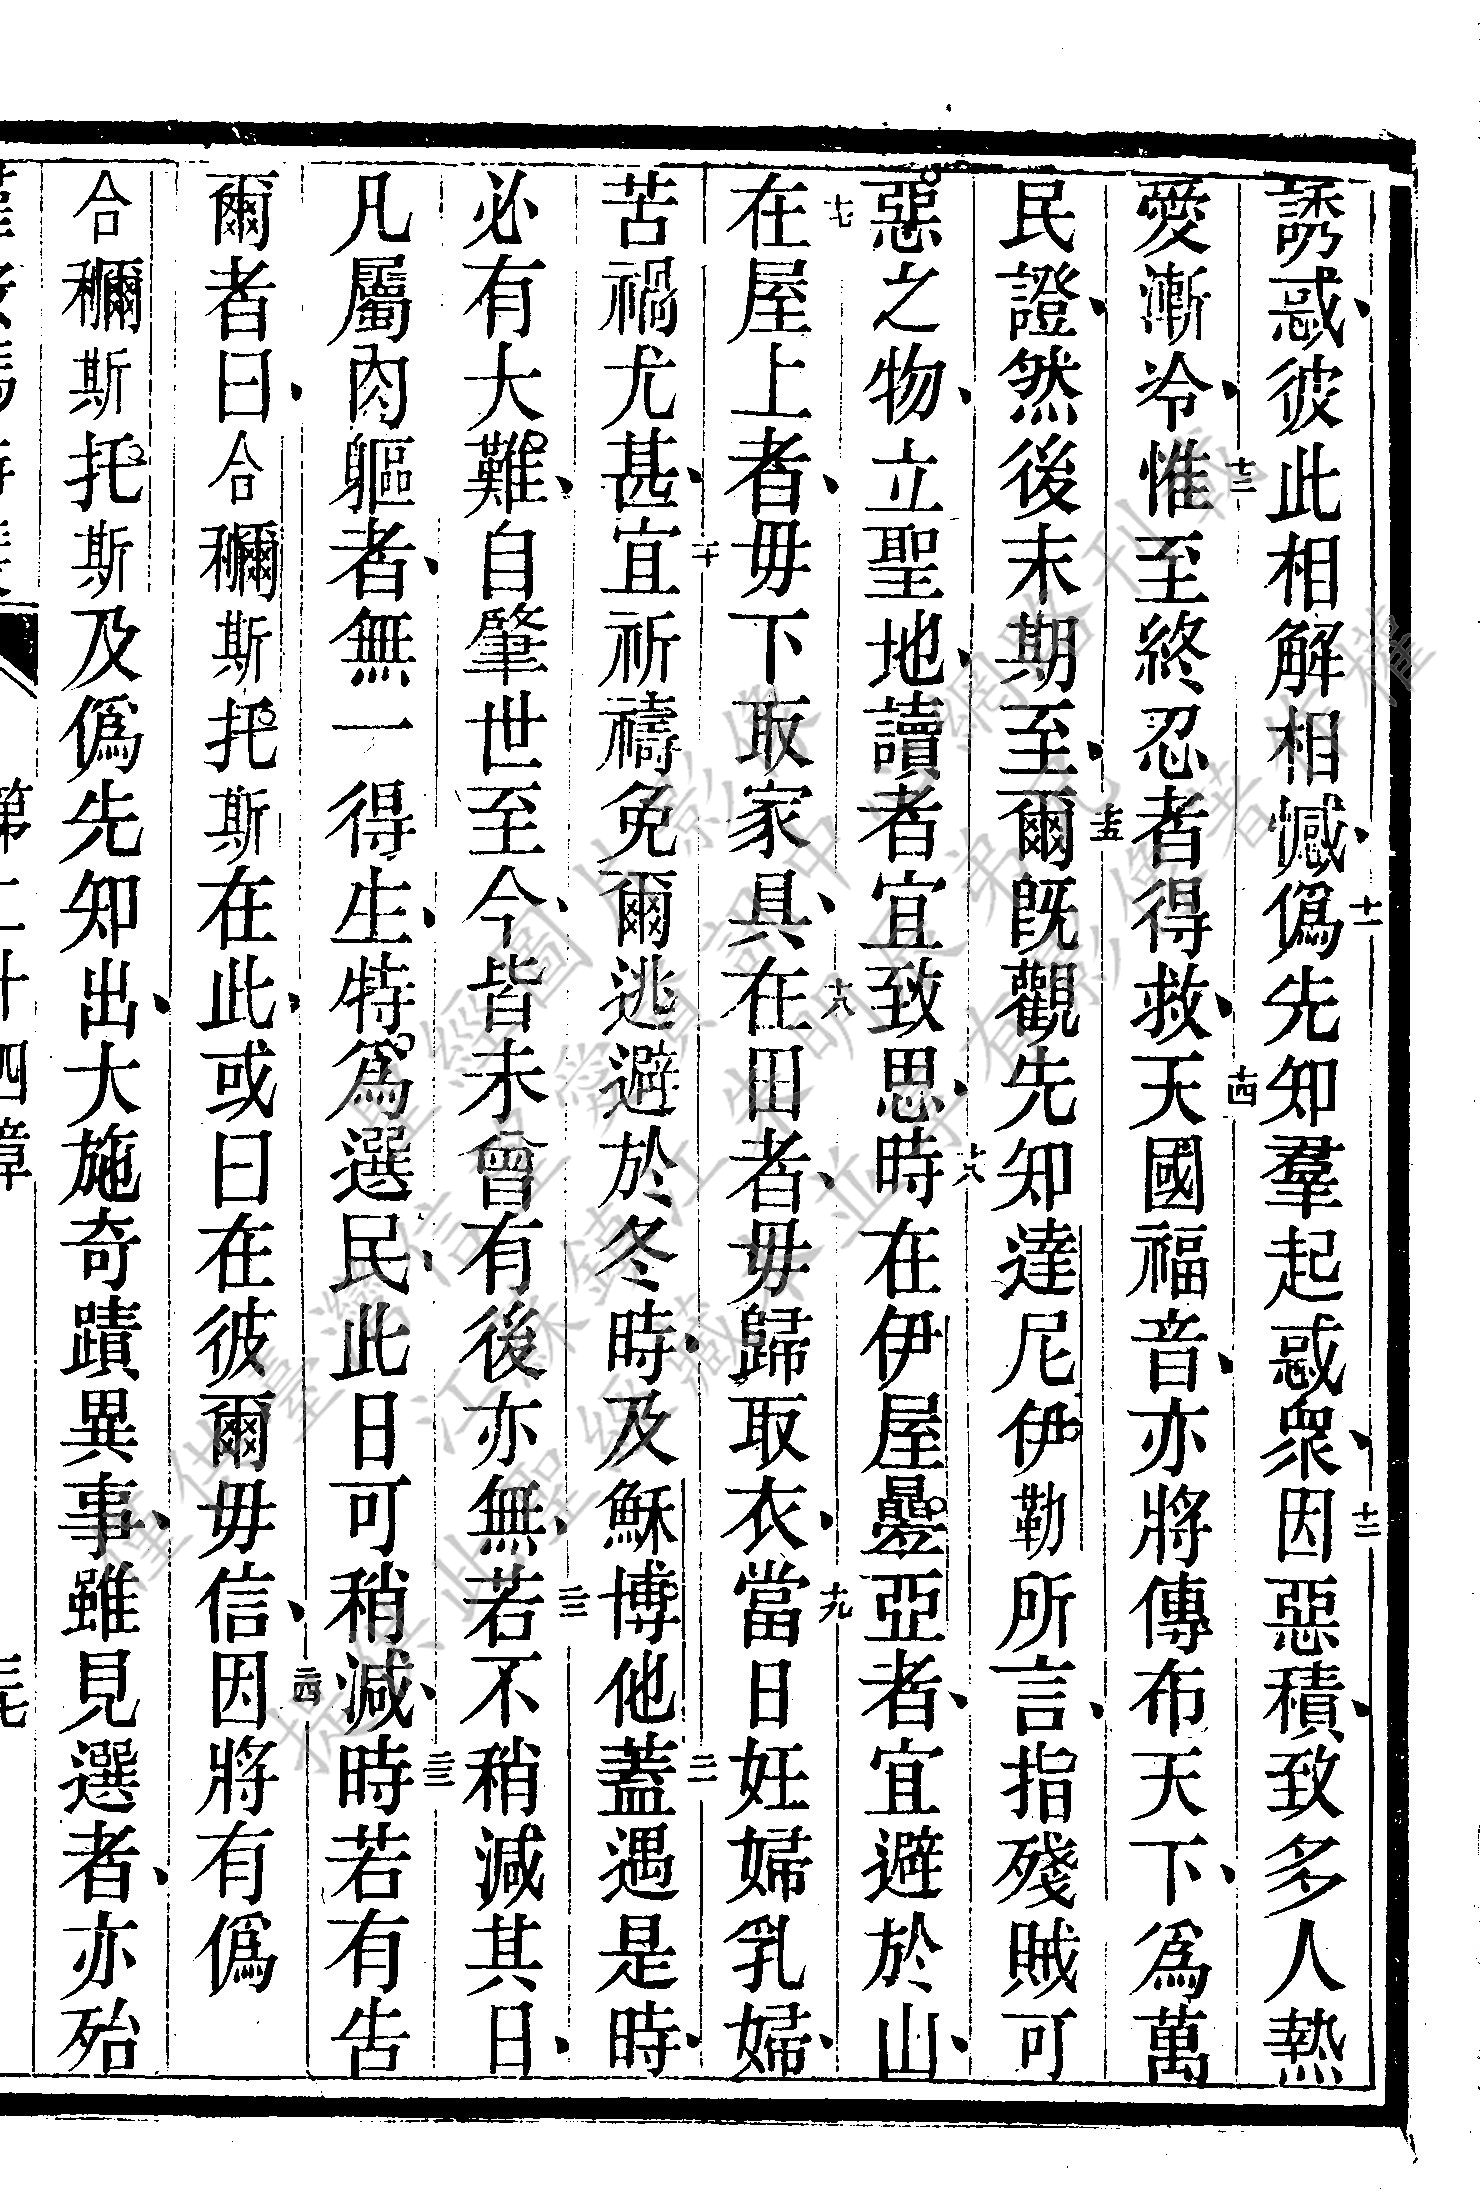 誘惑、彼此相解相憾、十一僞先知羣起惑衆、十二因惡積、致多人熱
愛漸冷、十三惟至終忍者得救、十四天國福音、亦將傳布天下、爲萬
民證、然後末期至、十五爾旣觀先知達尼伊勒所言、指殘賊可
惡之物、立聖地、讀者宜致思、十六時在伊屋疊亞者、宜避於山、
十七在屋上者、毋下取家具、十八在田者、毋歸取衣、十九當日妊婦乳婦、
苦禍尤甚、二十宜祈禱免爾逃避於冬時、及穌博他、二一蓋遇是時、
必有大難、自肇世至今、皆未曾有、後亦無、二二若不稍減其日、
凡屬肉軀者、無一得生、特爲選民、此日可稍減、二三時若有告
爾者曰、合穪斯托斯在此、或曰在彼、爾毋信、二四因將有僞
合穪斯托斯及僞先知出、大施奇蹟異事、雖見選者、亦殆
第二十四章